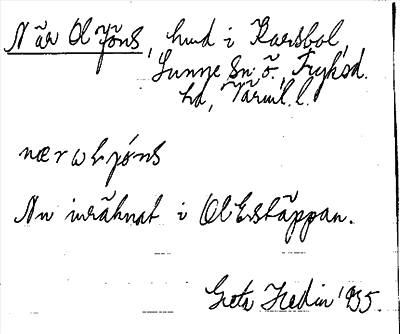 När Ol Jöns, hmd i Karsbol,
Sunne sn ö. Fryksd.
hd, Värml. l.
nær ωl jóns
Nu inräknat i Ol Estäppan.
Greta Hedin 1935.